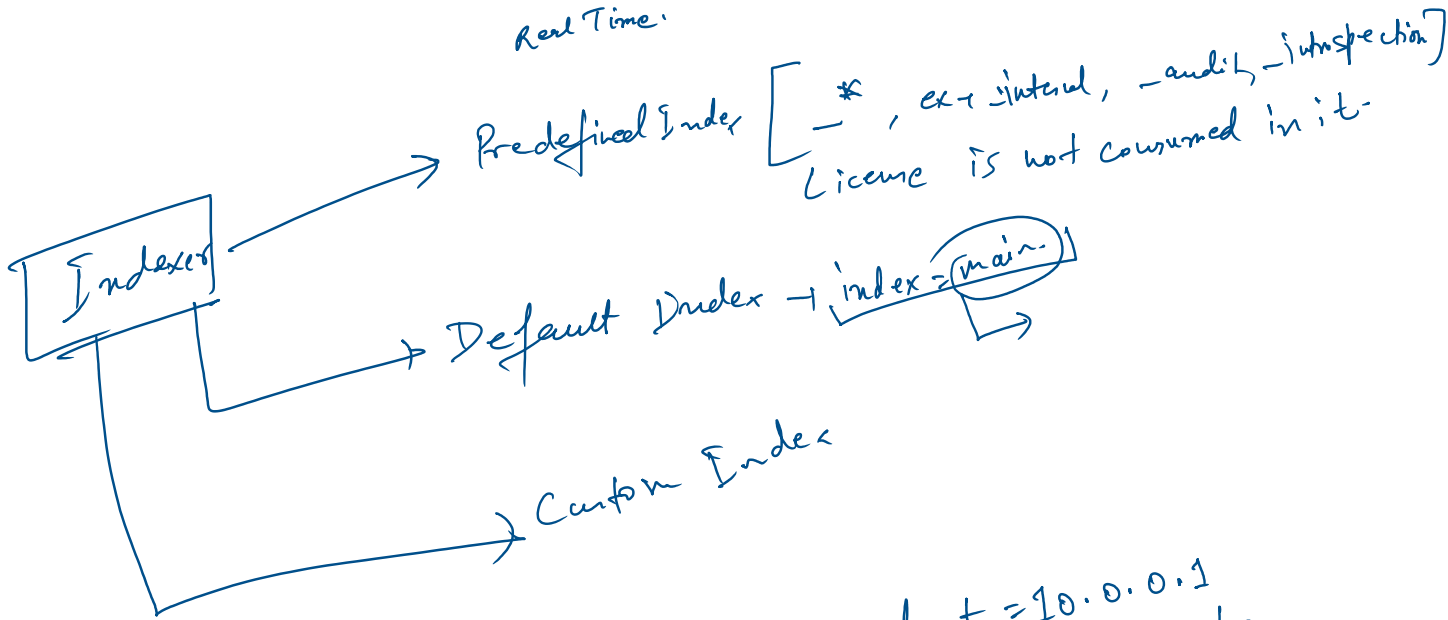 Real Time.
Predefined Index [ _* , ex → _internal, _audit, _introspection]
License is not consumed in it.
Indexer
Default Index → index = main.
Custom Index
= 10.0.0.1